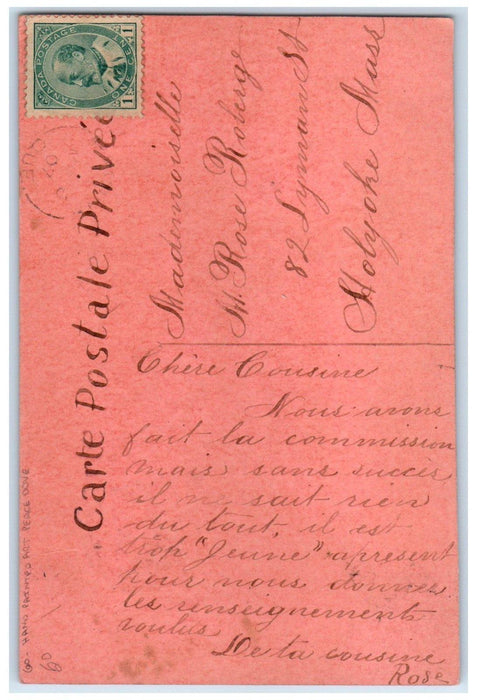 CANADA POSTAGE
ONE CENT
1 1
Carte Postale Privée
Mademoiselle
M. Rose Roberg
82 Lyman St
Holyoke Mass
Chère Cousine
Nous avons
fait la commission
mais sans succes
il n sait rien
du tout, il est
troh "Jeune" apresent
pour nous donner
les renseignements
voulus
De ta cousine
Rose
60- HAND PAINTED ART PEACE DOVE
60